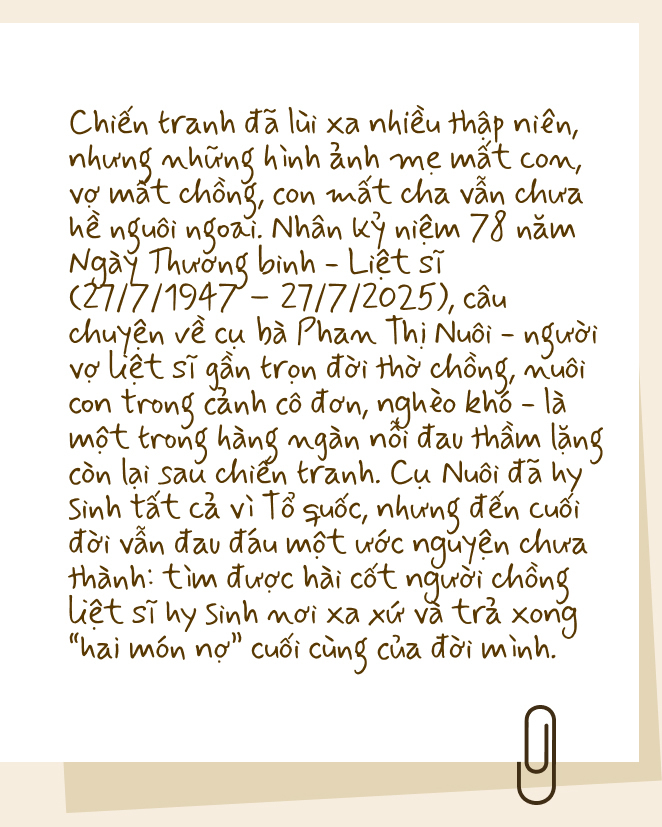 Chiến tranh đã lùi xa nhiều thập niên,
nhưng những hình ảnh mẹ mất con,
vợ mất chồng, con mất cha vẫn chưa
hề nguôi ngoai. Nhân kỷ niệm 78 năm
Ngày Thương binh - Liệt sĩ
(27/7/1947 – 27/7/2025), câu
chuyện về cụ bà Phan Thị Nuôi - người
vợ liệt sĩ gần trọn đời thờ chồng, nuôi
con trong cảnh cô đơn, nghèo khó - là
một trong hàng ngàn nỗi đau thầm lặng
còn lại sau chiến tranh. Cụ Nuôi đã hy
sinh tất cả vì Tổ quốc, nhưng đến cuối
đời vẫn đau đáu một ước nguyện chưa
thành: tìm được hài cốt người chồng
liệt sĩ hy sinh nơi xa xứ và trả xong
“hai món nợ” cuối cùng của đời mình.